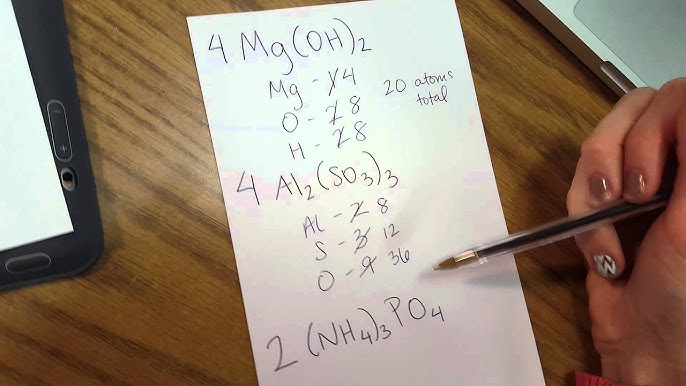 4 Mg(OH)₂
Mg - 1 4
O - 2 8
H - 2 8
20 atoms
total
4 Al₂(SO₃)₃
Al - 2 8
S - 3 12
O - 9 36
2 (NH₄)₃PO₄